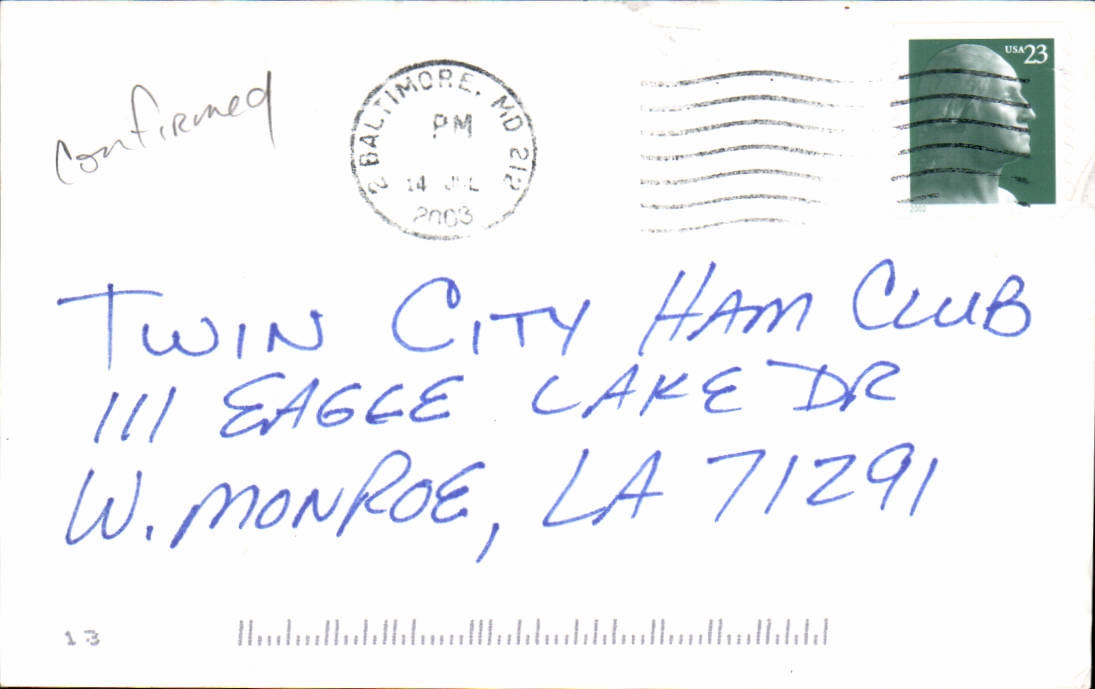 confirmed
2 BALTIMORE, MD 212
PM
14 JUL
2003
USA 23
2002
TWIN CITY HAM CLUB
111 EAGLE LAKE DR
W. MONROE, LA 71291
13